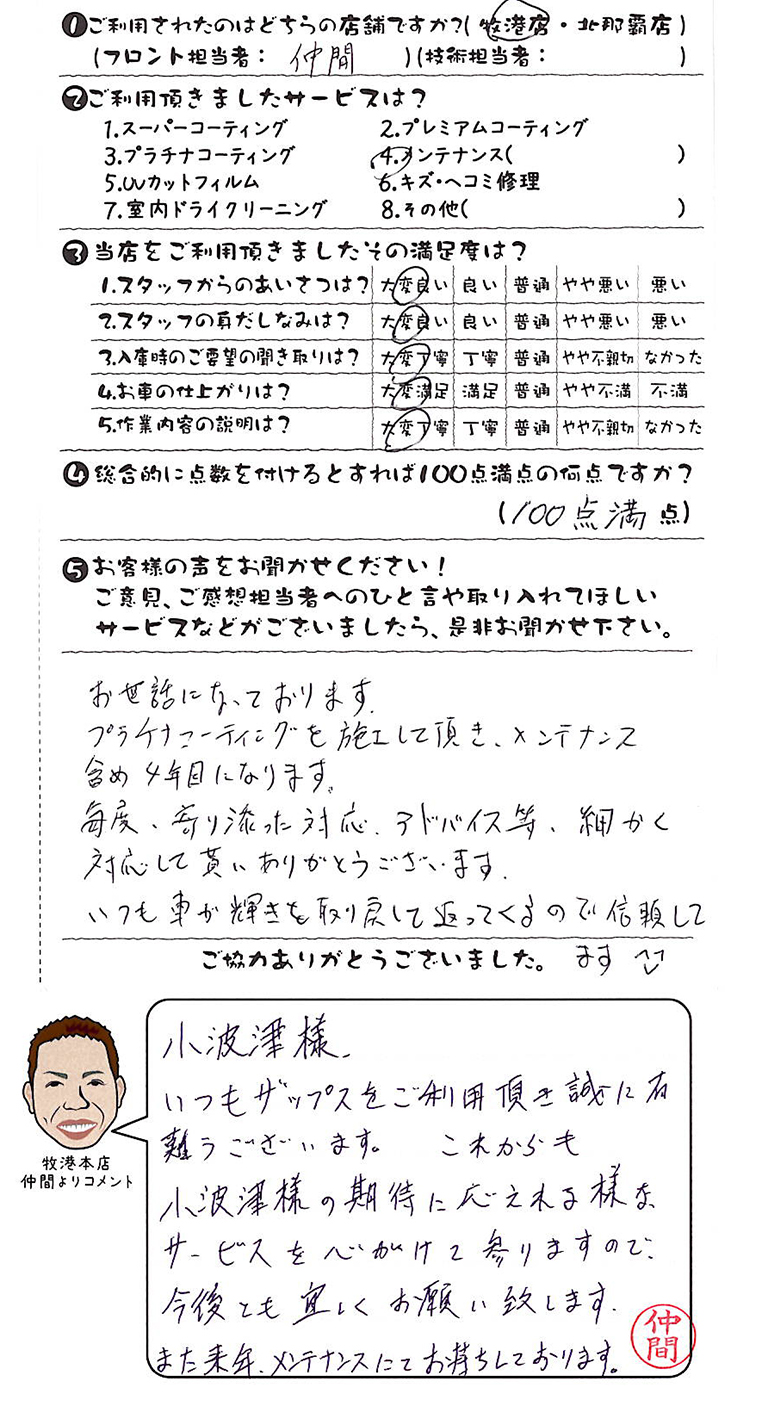 ❶ご利用されたのはどちらの店舗ですか?(牧港店・北那覇店)
(フロント担当者: 仲間 )(技術担当者: )
❷ご利用頂きましたサービスは?
1.スーパーコーティング 2.プレミアムコーティング
3.プラチナコーティング 4.メンテナンス( )
5.UVカットフィルム 6.キズ・ヘコミ修理
7.室内ドライクリーニング 8.その他( )
❸当店をご利用頂きましたその満足度は?
1.スタッフからのあいさつは? 大変良い 良い 普通 やや悪い 悪い
2.スタッフの身だしなみは? 大変良い 良い 普通 やや悪い 悪い
3.入庫時のご要望の聞き取りは? 大変丁寧 丁寧 普通 やや不親切 なかった
4.お車の仕上がりは? 大変満足 満足 普通 やや不満 不満
5.作業内容の説明は? 大変丁寧 丁寧 普通 やや不親切 なかった
❹総合的に点数を付けるとすれば100点満点の何点ですか?
(100点満 点)
❺お客様の声をお聞かせください!
ご意見、ご感想担当者へのひと言や取り入れてほしい
サービスなどがございましたら、是非お聞かせ下さい。
お世話になっております。
プラチナコーティングを施工して頂き、メンテナンス
含め4年目になります。
毎度、寄り添った対応、アドバイス等、細かく
対応して貰いありがとうございます。
いつも車が輝きを取り戻して返ってくるので信頼して
ご協力ありがとうございました。 ます
小波津様、
いつもザップスをご利用頂き誠に有
難うございます。 これからも
小波津様の期待に応えれる様な
サービスを心がけて参りますので、
今後とも宜しくお願い致します。
また来年、メンテナンスにてお待ちしております。
仲間
牧港本店
仲間よりコメント